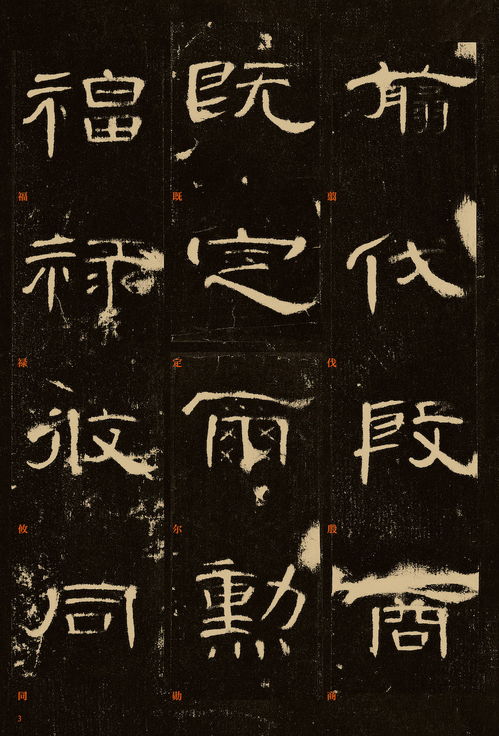 翦伐殷商
既定爾勳
福祿攸同
翦伐殷商
既定尔勋
福禄攸同
3